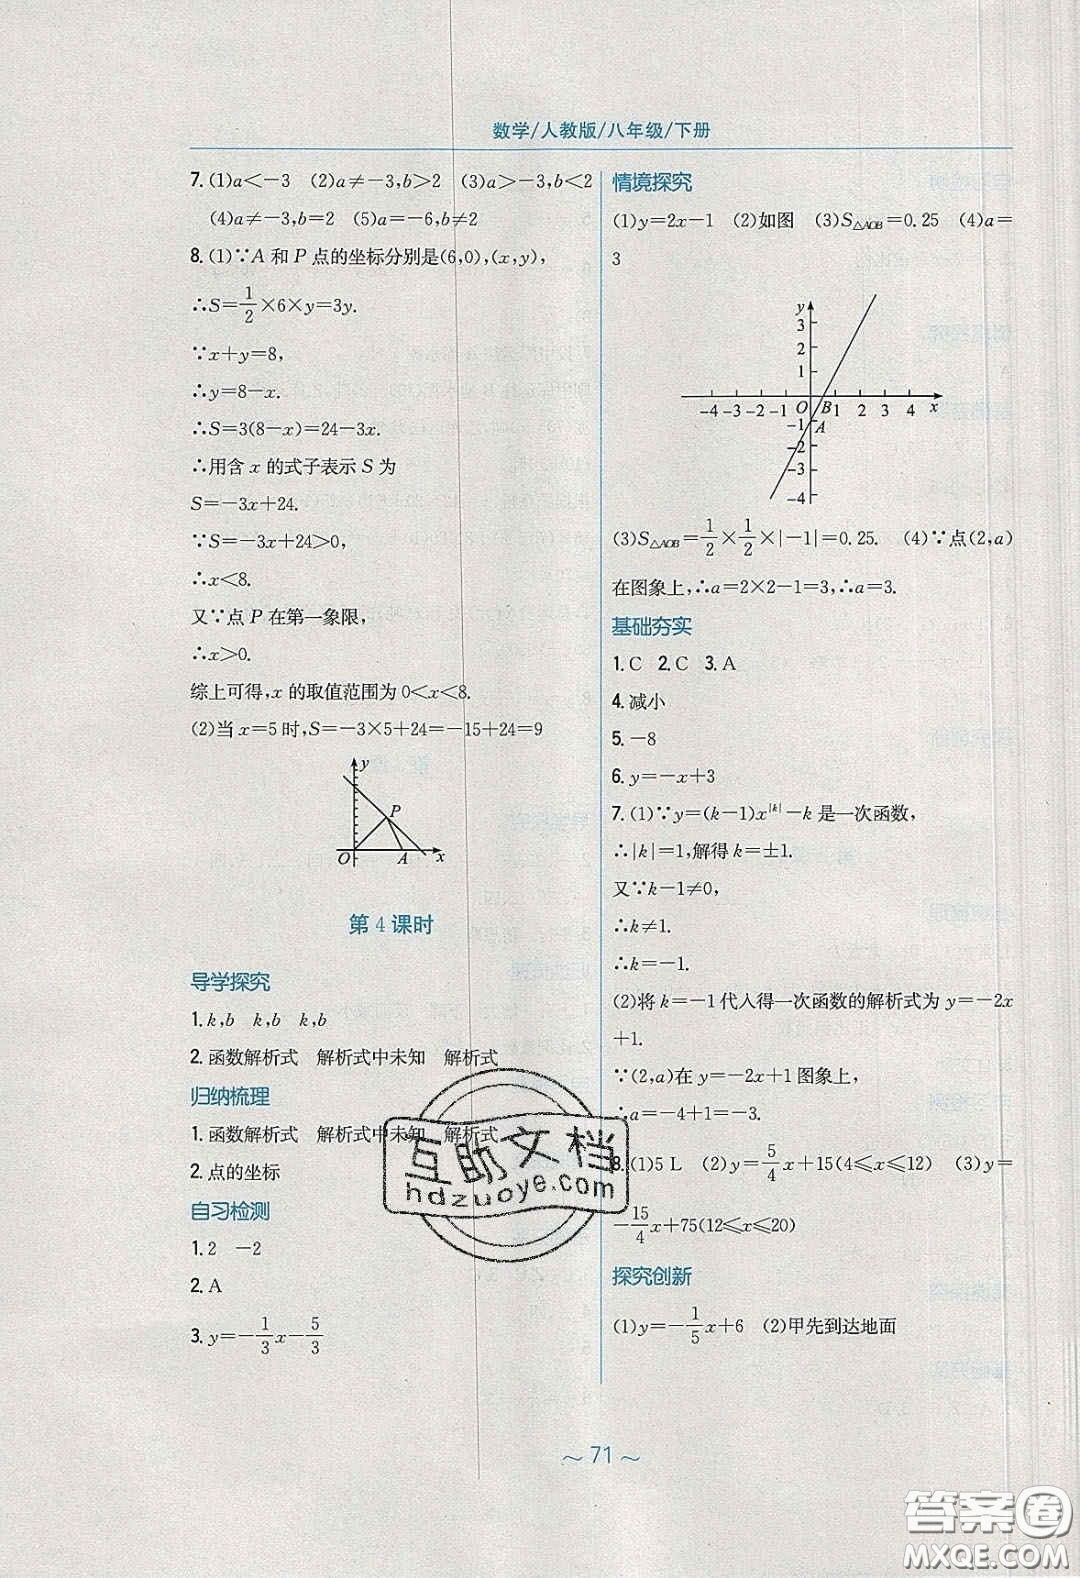 数学/人教版/八年级/下册
7.(1)a<-3 (2)a≠-3,b>2 (3)a>-3,b<2
(4)a≠-3,b=2 (5)a=-6,b≠2
8.(1)∵A 和 P 点的坐标分别是(6,0),(x,y),
∴S=1/2×6×y=3y.
∵x+y=8,
∴y=8-x.
∴S=3(8-x)=24-3x.
∴用含 x 的式子表示 S 为
S=-3x+24.
∵S=-3x+24>0,
∴x<8.
又∵点 P 在第一象限,
∴x>0.
综上可得,x 的取值范围为 0<x<8.
(2)当 x=5 时,S=-3×5+24=-15+24=9
y
P
O A x
第 4 课时
导学探究
1.k,b k,b k,b
2.函数解析式 解析式中未知 解析式
归纳梳理
1.函数解析式 解析式中未知 解析式
2.点的坐标
自习检测
1.2 -2
2.A
3.y=-1/3x-5/3
情境探究
(1)y=2x-1 (2)如图 (3)S△AOB=0.25 (4)a=
3
y
3
2
1
-4 -3 -2 -1 O B 1 2 3 4 x
-1 A
-2
-3
-4
(3)S△AOB=1/2×1/2×|-1|=0.25. (4)∵点(2,a)
在图象上,∴a=2×2-1=3,∴a=3.
基础夯实
1.C 2.C 3.A
4.减小
5.-8
6.y=-x+3
7.(1)∵y=(k-1)x|k|-k 是一次函数,
∴|k|=1,解得 k=±1.
又∵k-1≠0,
∴k≠1.
∴k=-1.
(2)将 k=-1 代入得一次函数的解析式为 y=-2x
+1.
∵(2,a)在 y=-2x+1 图象上,
∴a=-4+1=-3.
8.(1)5 L (2)y=5/4x+15(4≤x≤12) (3)y=
-15/4x+75(12≤x≤20)
探究创新
(1)y=-1/5x+6 (2)甲先到达地面
~71~
互助文档
hdzuoye.com
答案圈
MXQE.COM